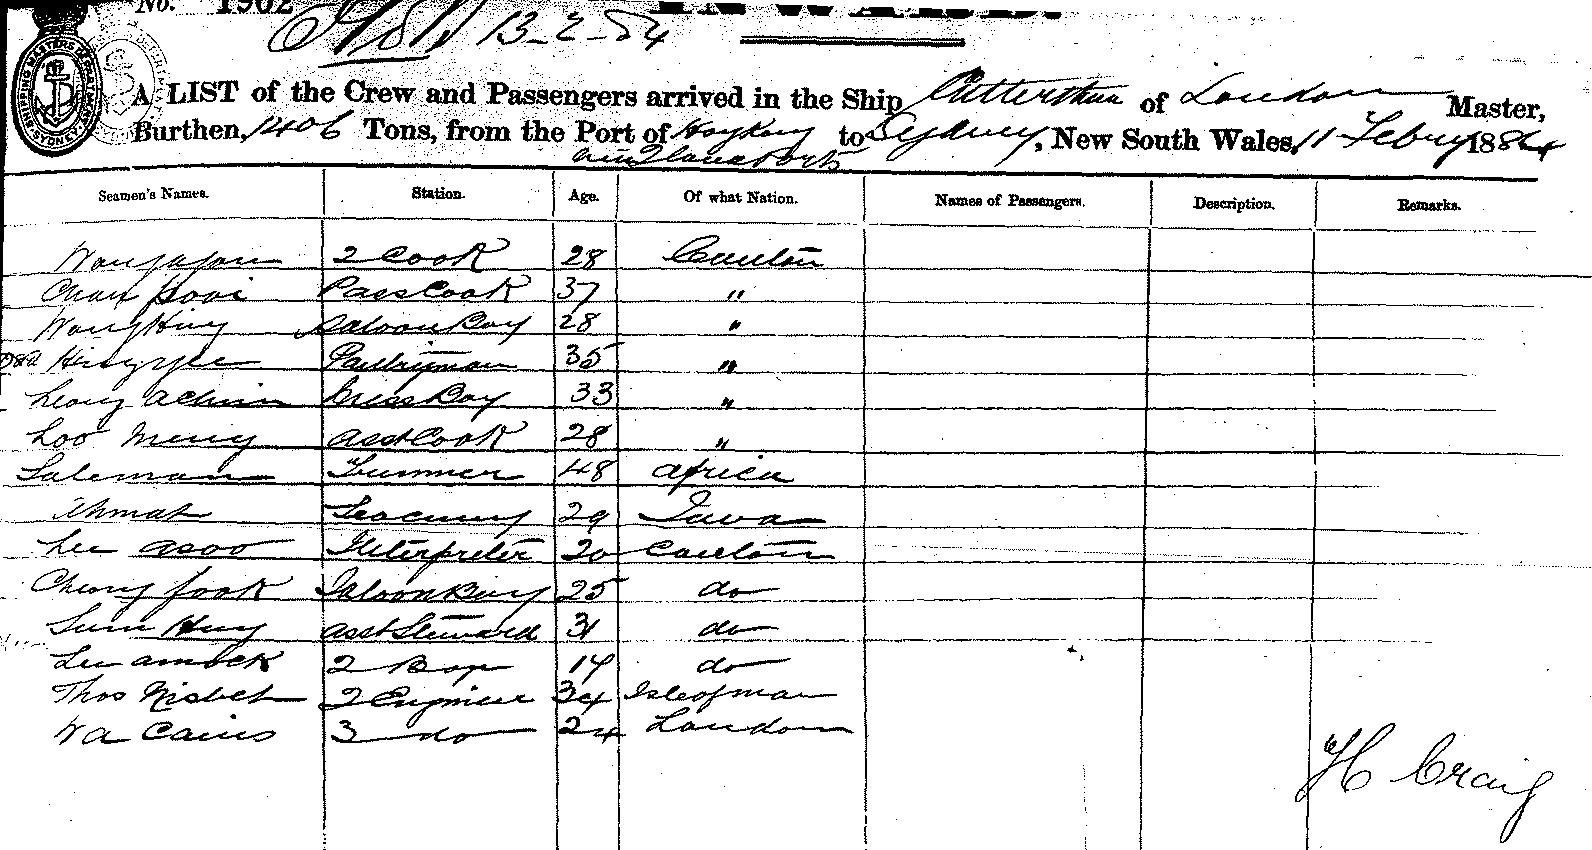 No. 1962
13-2-84
A LIST of the Crew and Passengers arrived in the Ship Catterthun of London Master,
Burthen, 1406 Tons, from the Port of Hong Kong to Sydney, New South Wales, 11 Febry 1884
Seamen's Names. Station. Age. Of what Nation. Names of Passengers. Description. Remarks.
2 Cook 28 Canton
Chan Pass Cook 37 "
Wong Hing Saloon Boy 28 "
Pantryman 35 "
Leong Achim Mess Boy 33 "
Loo Meng Asst Cook 28 "
Saleman 48 Africa
Ahmat Seacunny 29 Java
Lee Asoo Interpreter 20 Canton
Cheong Fook Saloon Boy 25 do
Asst Steward 31 do
Lee Amock 2 Boy 14 do
Thos Nisbet 2 Engineer 34 Isle of man
Wa Cains 3 do 24 London
H Craig